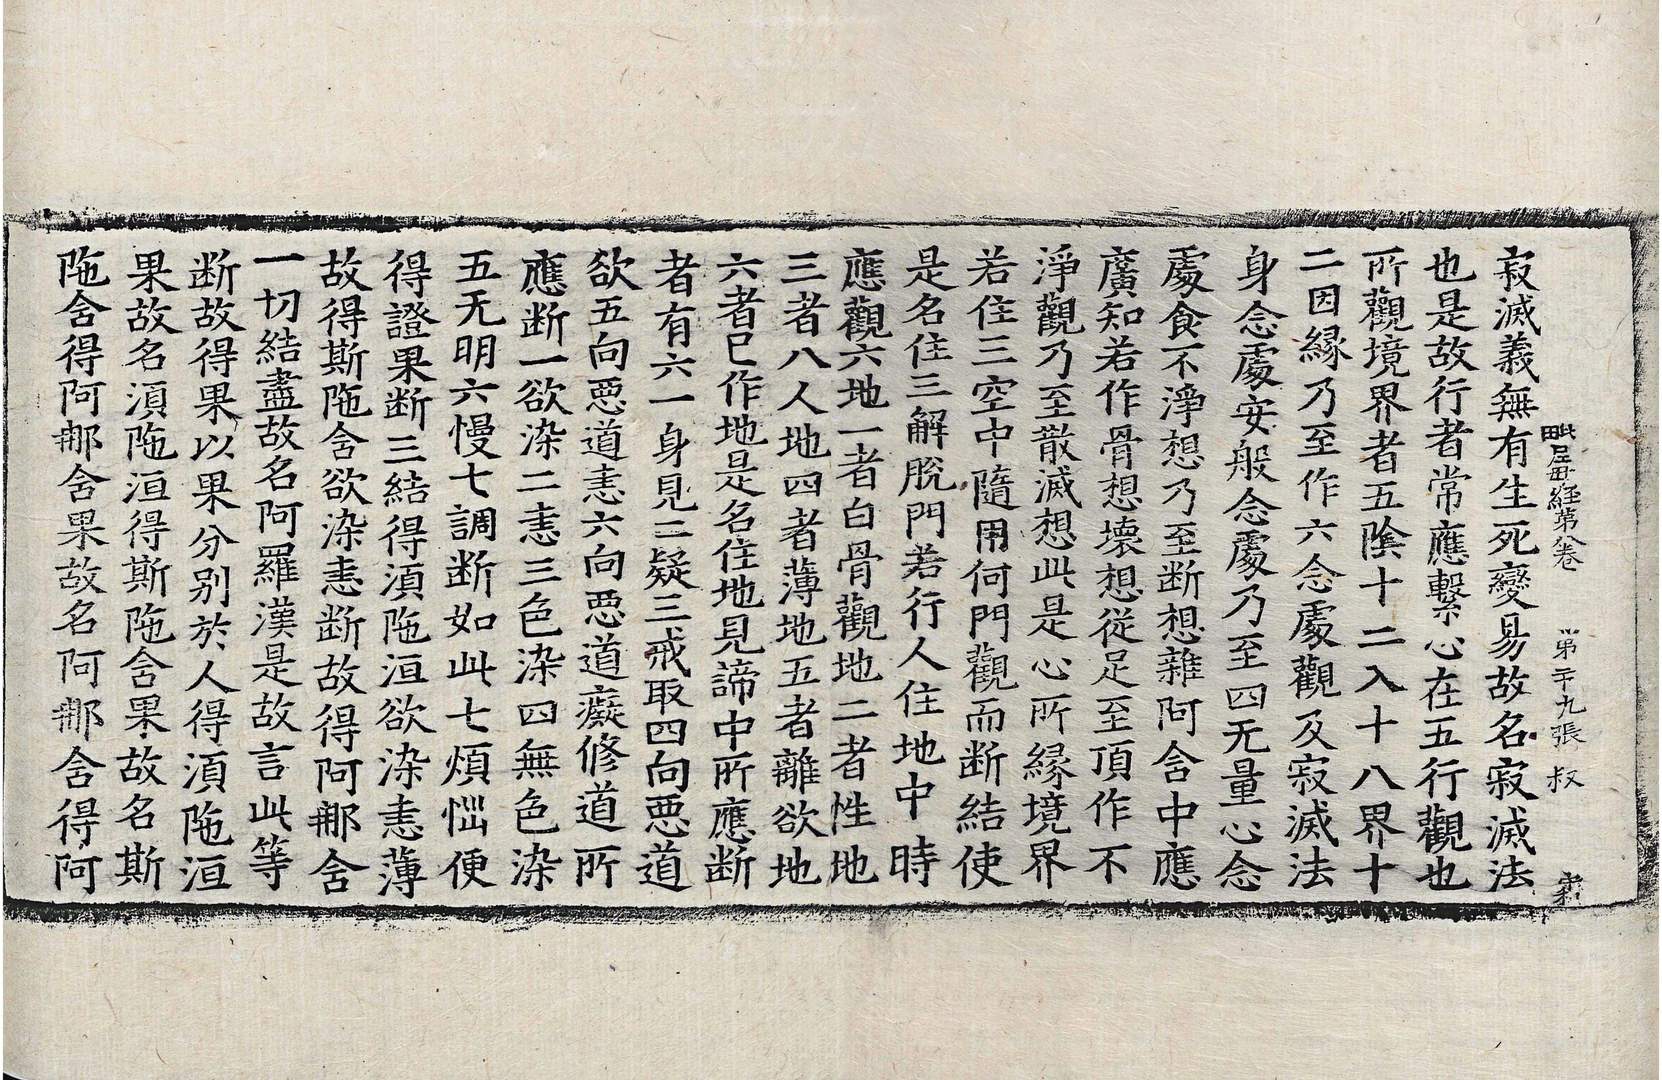 毗尼母經第八卷　第二十九張　叔
寂滅義無有生死變易故名寂滅法
也是故行者常應繫心在五行觀也
所觀境界者五陰十二入十八界十
二因縁乃至作六念處觀及寂滅法
身念處安般念處乃至四无量心念
處食不淨想乃至断想雜阿含中應
廣知若作骨想壞想從足至頂作不
淨觀乃至散滅想此是心所縁境界
若住三空中隨用何門觀而断結使
是名住三解脫門若行人住地中時
應觀六地一者白骨觀地二者性地
三者八人地四者薄地五者離欲地
六者已作地是名住地見諦中所應断
者有六一身見二疑三戒取四向惡道
欲五向惡道恚六向惡道癡修道所
應断一欲染二恚三色染四無色染
五无明六慢七調断如此七煩惱便
得證果断三結得湏陁洹欲染恚薄
故得斯陁含欲染恚断故得阿那含
一切結盡故名阿羅漢是故言此等
断故得果以果分别於人得湏陁洹
果故名湏陁洹得斯陁含果故名斯
陁含得阿那含果故名阿那含得阿